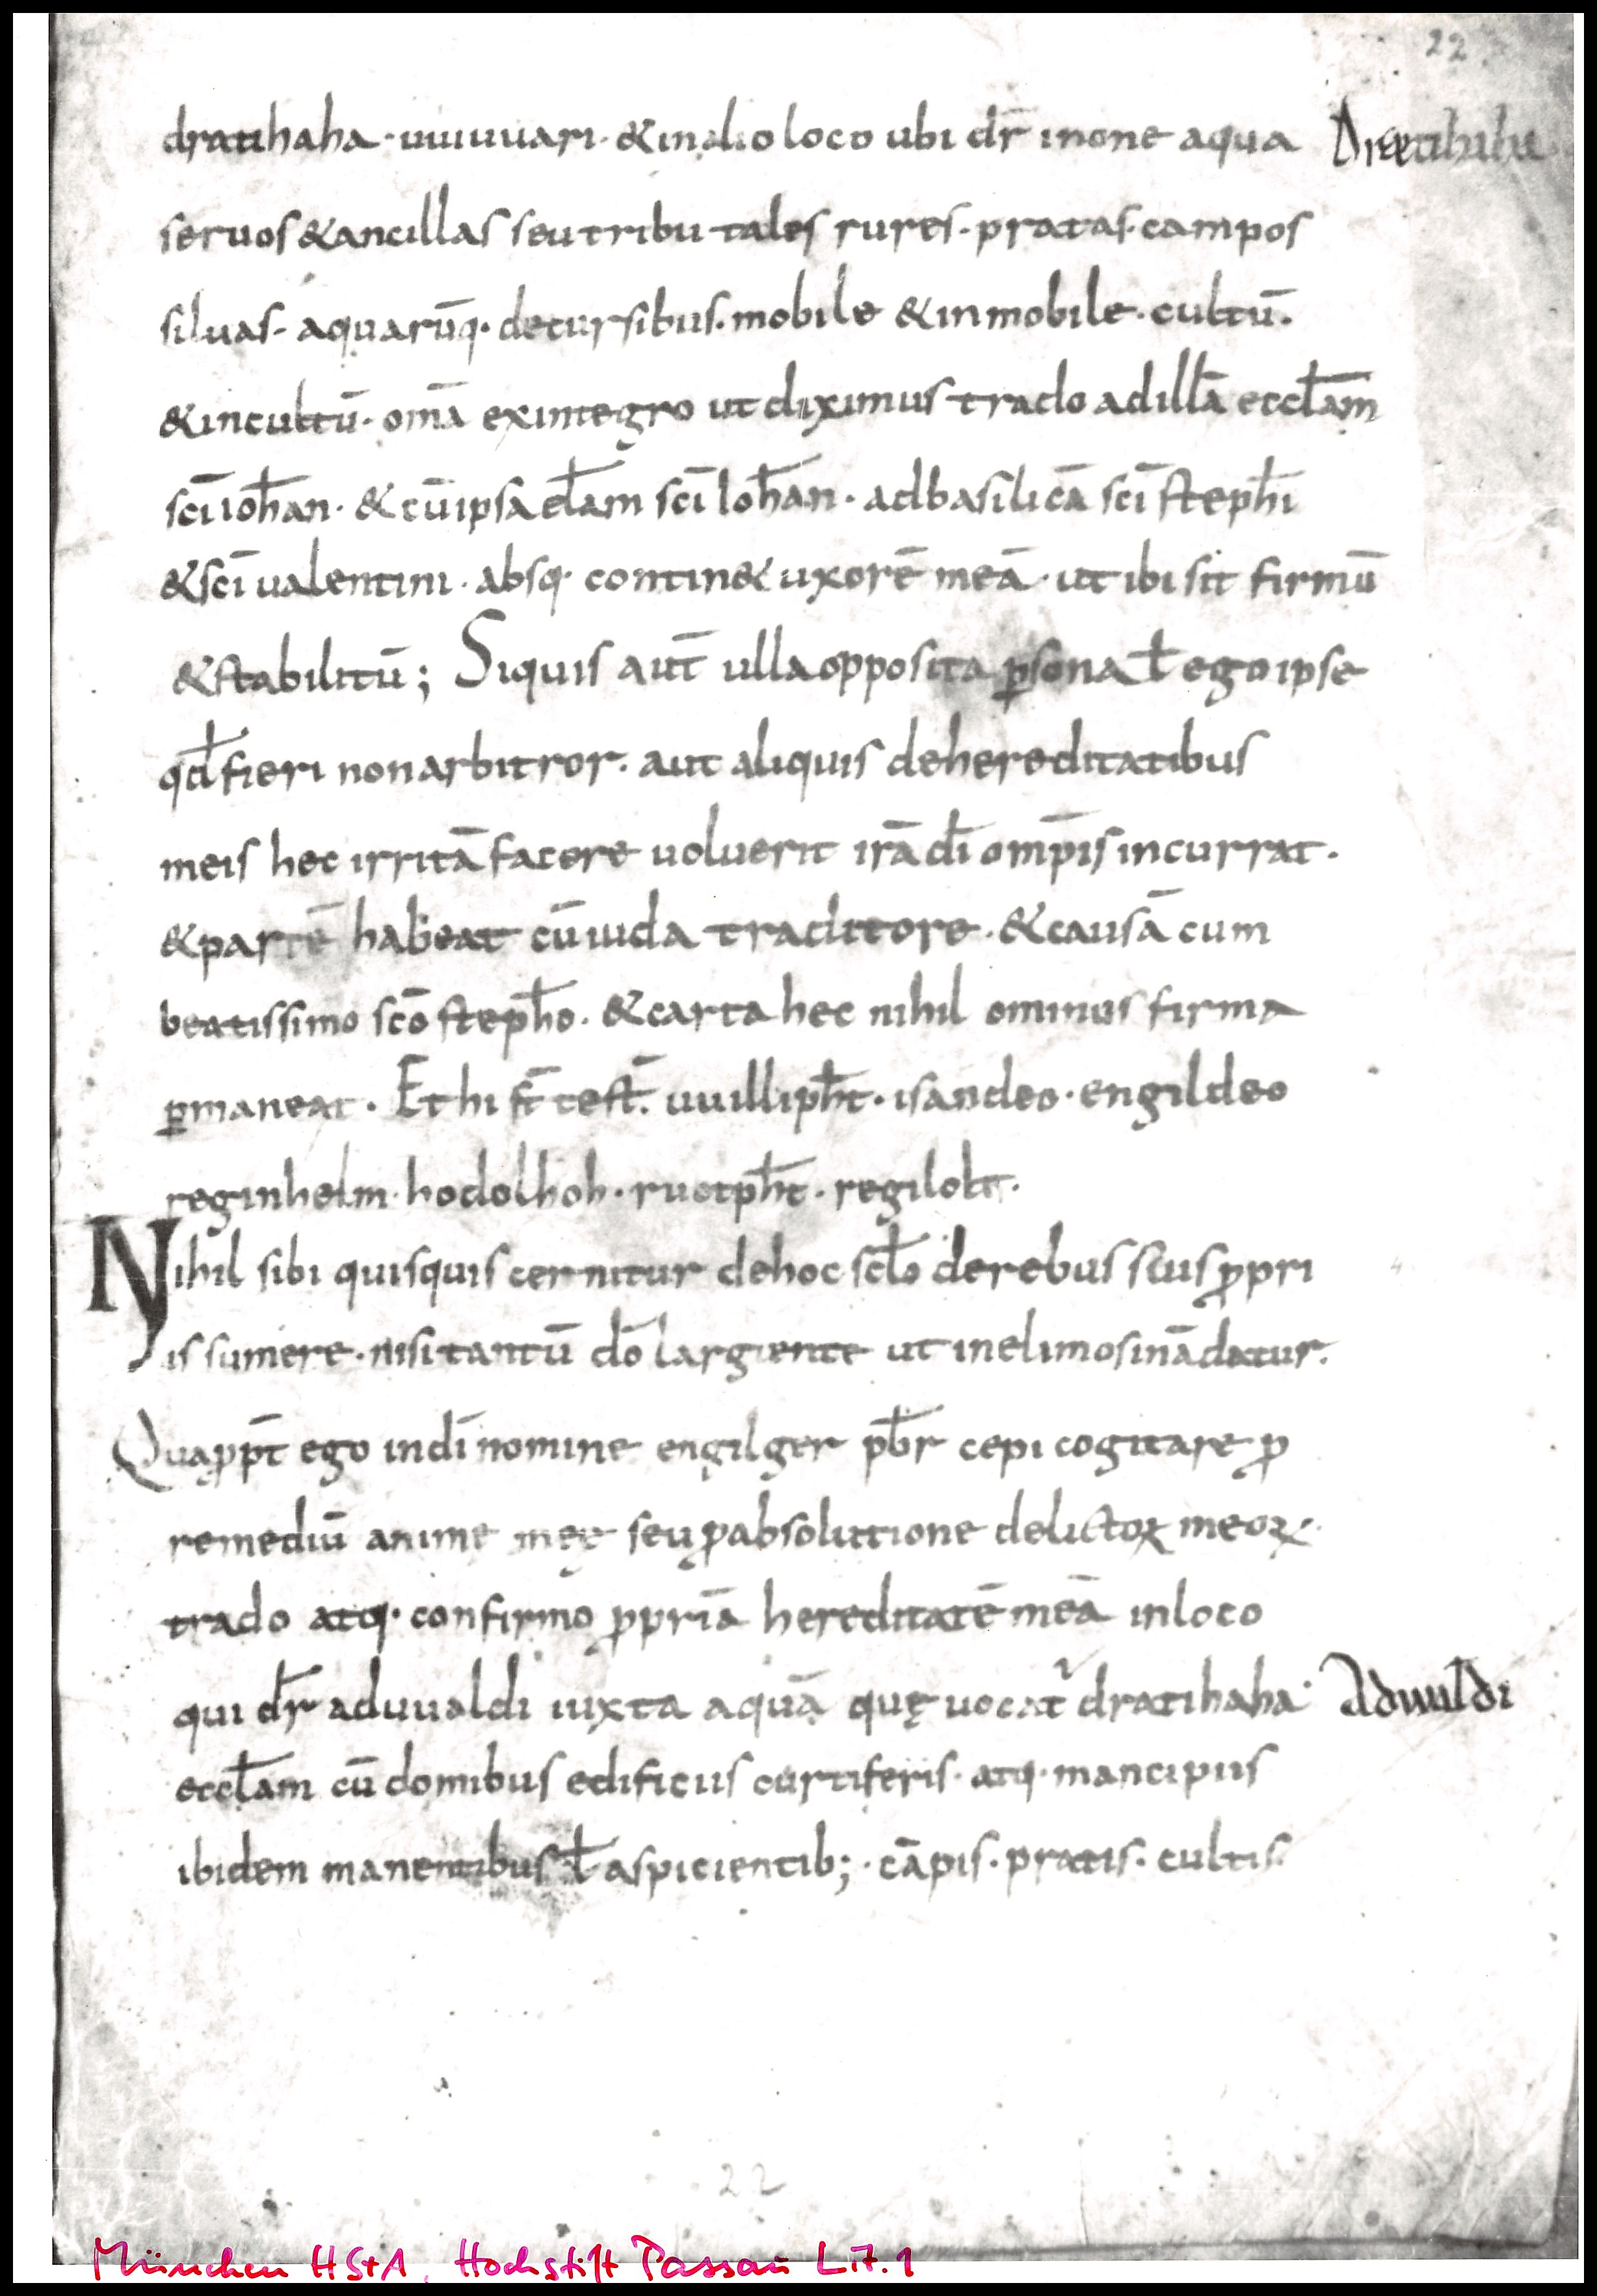 22
dratihaha · uuiuuari · & in alio loco ubi dr̄ inone aqua Dratihaha
seruos & ancillas seu tributales rures · pratas · campos
siluas · aquarūq· decursibus · mobile & inmobile · cultū ·
& incultū · om̄a ex integro ut diximus trado ad illā eccłam
scī ioh̄an · & cū ipsa ełam scī Ioh̄an · ad basilicā scī steph̄i
& scī ualentini · absq· contin& uxorē meā · ut ibi sit firmū
& stabilitū ; Siquis aut̄ ulla opposita ꝑsona ł ego ipse
qd̄ fieri non arbitror · aut aliquis de hereditatibus
meis hec irritā facere uoluerit irā dī omp̄is incurrat ·
& partē habeat cū iuda traditore · & causā cum
beatissimo scō steph̄o · & carta hec nihil ominus firma
ꝑmaneat · Et hi s̄t test̄ · uuilliph̄t · isandeo · engildeo
reginhelm · hodolhoh · ruotph̄t · regilolt ·
Nihil sibi quisquis cernitur de hoc scł̄o de rebus suis ꝓpri
is sumere · nisi tantū dō largiente ut in elimosinā datur ·
Quaꝓpt̄ ego in dī nomine engilger pb̄r cepi cogitare ꝓ
remediū anime meę seu ꝓ absolutione delictoꝝ meoꝝ ·
trado atq· confirmo ꝓpriā hereditatē meā in loco
qui dr̄ aduualdi iuxta aquā quę uocat᷑ dratihaha · Adwaldi
eccłam cū domibus edificiis curtiferis · atq· mancipiis
ibidem manentibus ł aspicientib; · cāpis · pratis · cultis ·
22
München HStA, Hochstift Passau Lit. 1